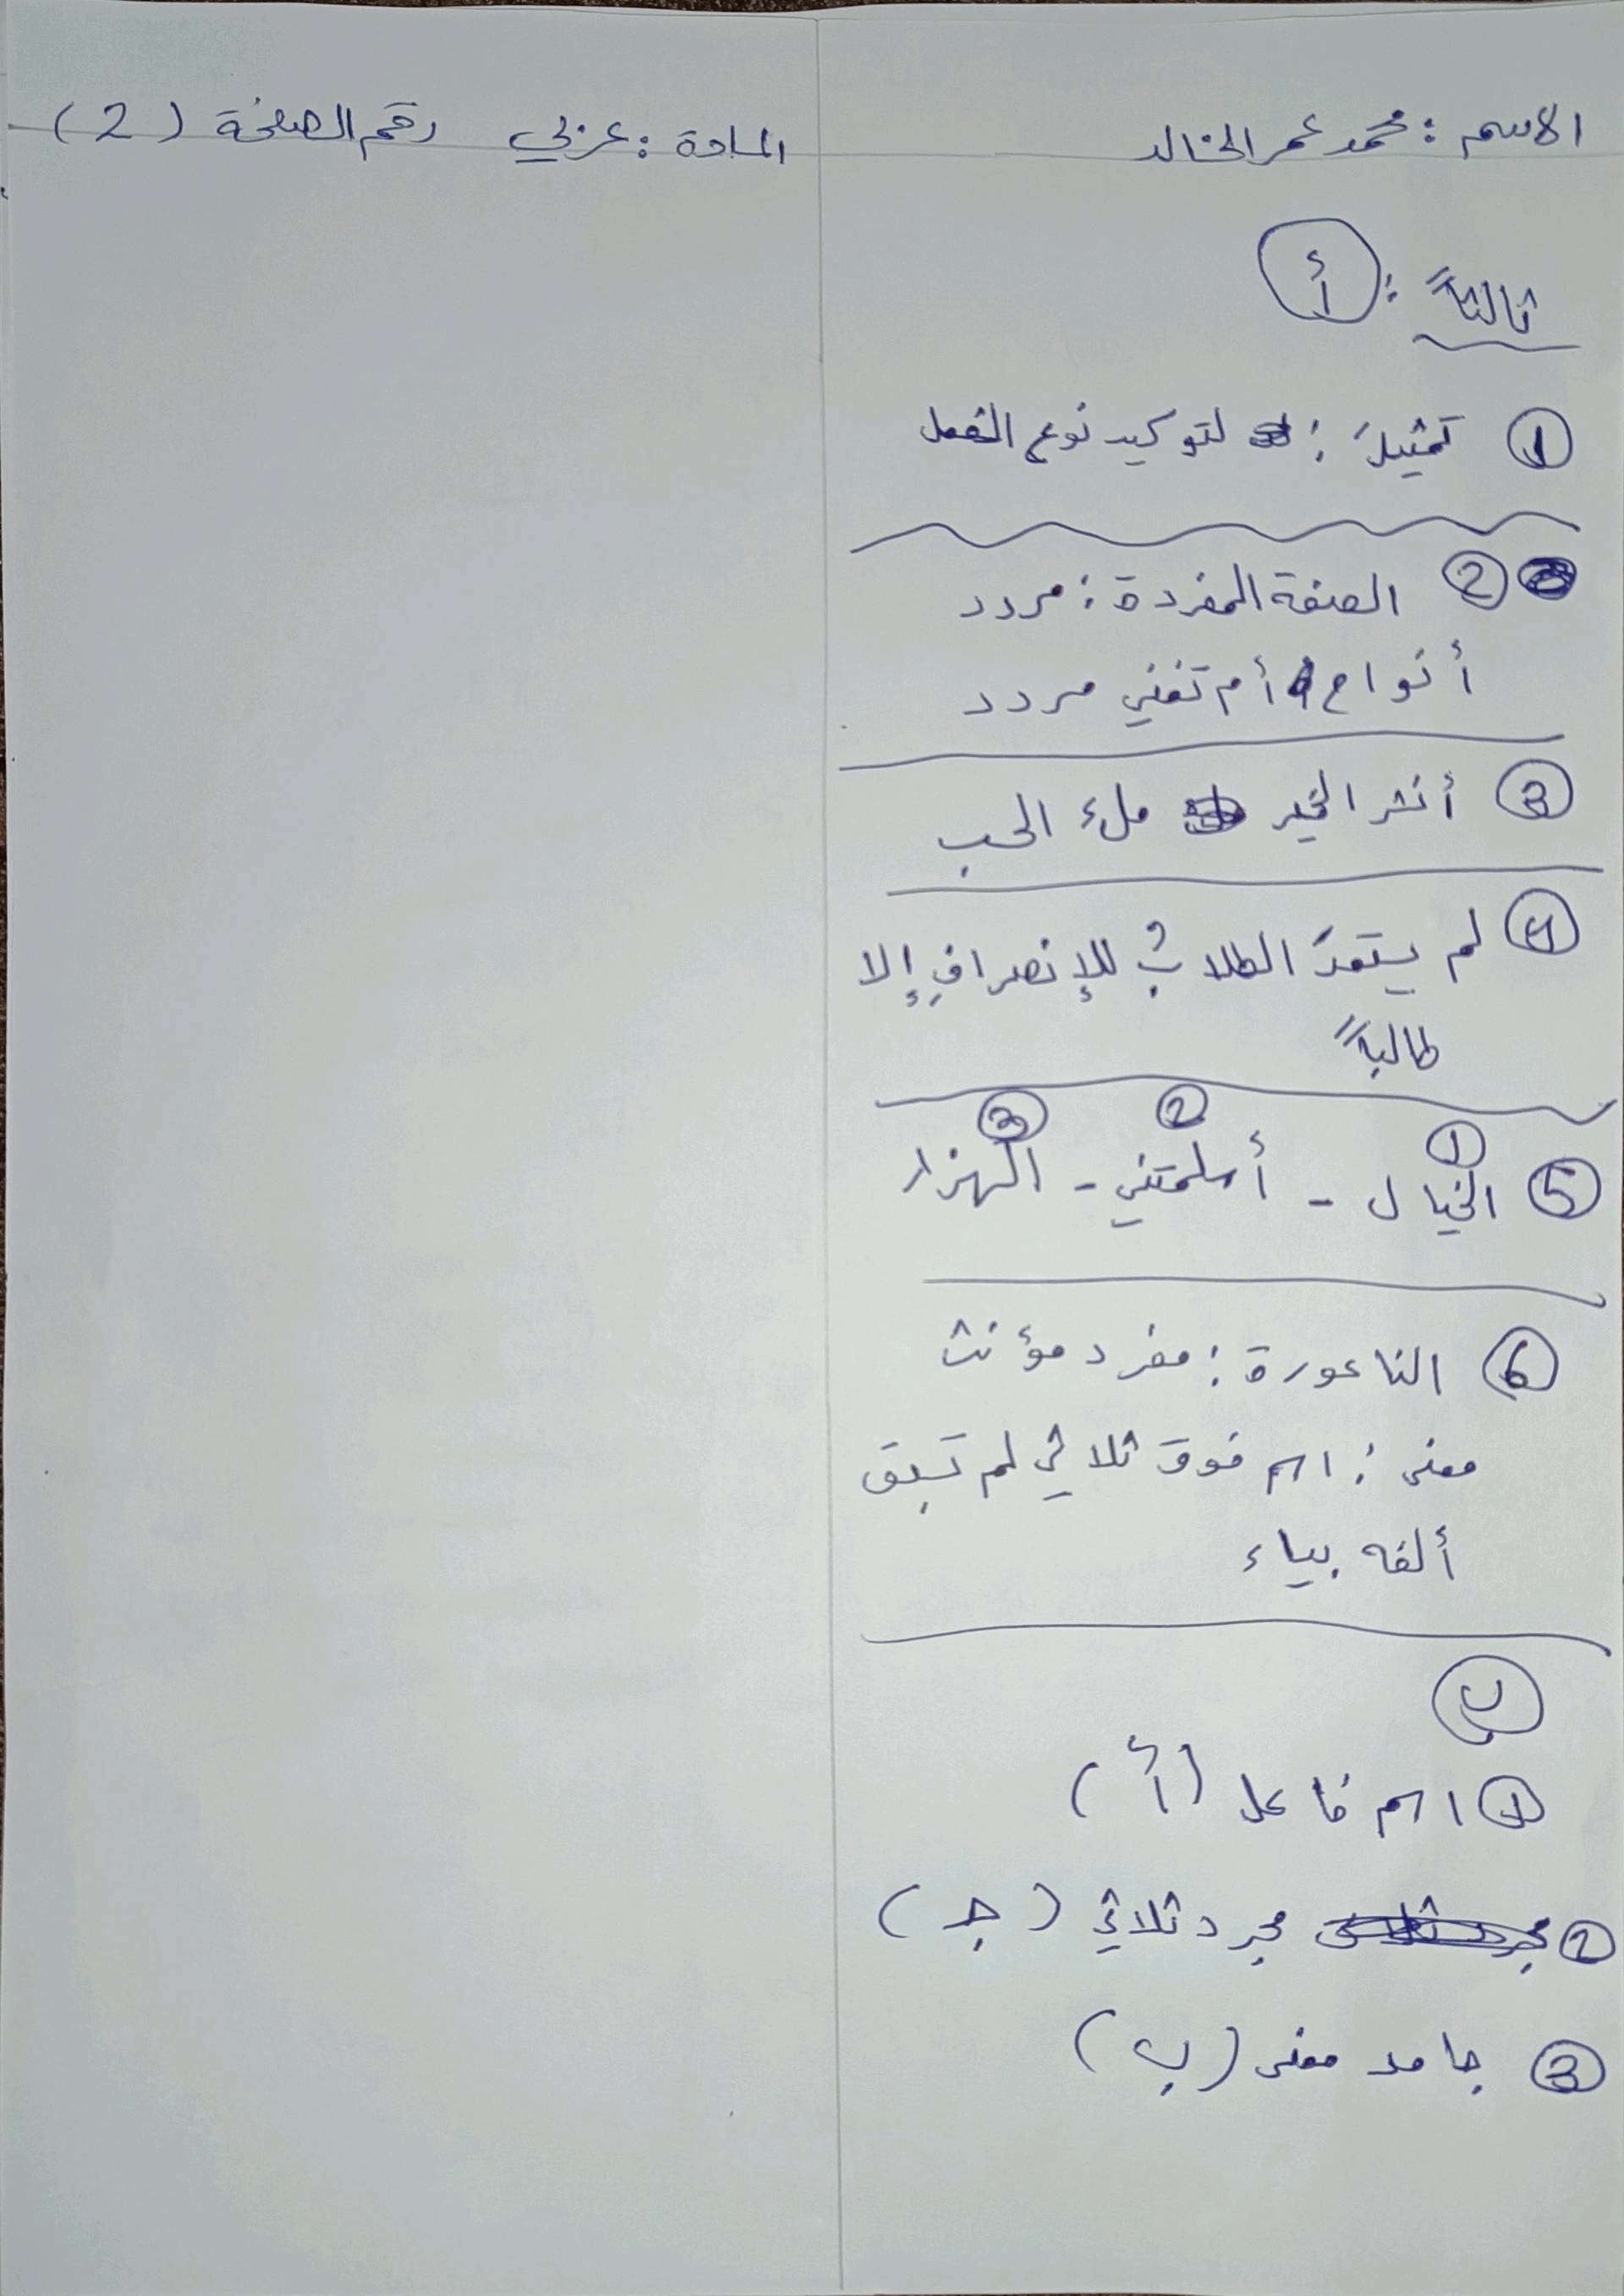 الاسم : محمد عمر الخالد
المادة : عربي رقم الصفحة (2)
ثالثاً : أ
1 تمثيلَ : لتوكيد نوع الفعل
2 الصفة المفردة : مردد
أنواح أم تغني مردد
3 أنشر الخير ملء الحب
4 لم يستعدَ الطلابُ للإنصرافِ إلا
طالباً
1 2 3
5 الخيال - أسلمتني - الهزار
6 الناعورة : مفرد مؤنث
معنى : اسم فوق ثلاثي لم تسبق
ألفه بياء
ب
1 اسم فاعل (أ)
2 مجرد ثلاثي (جـ)
3 جامد معنى (ب)